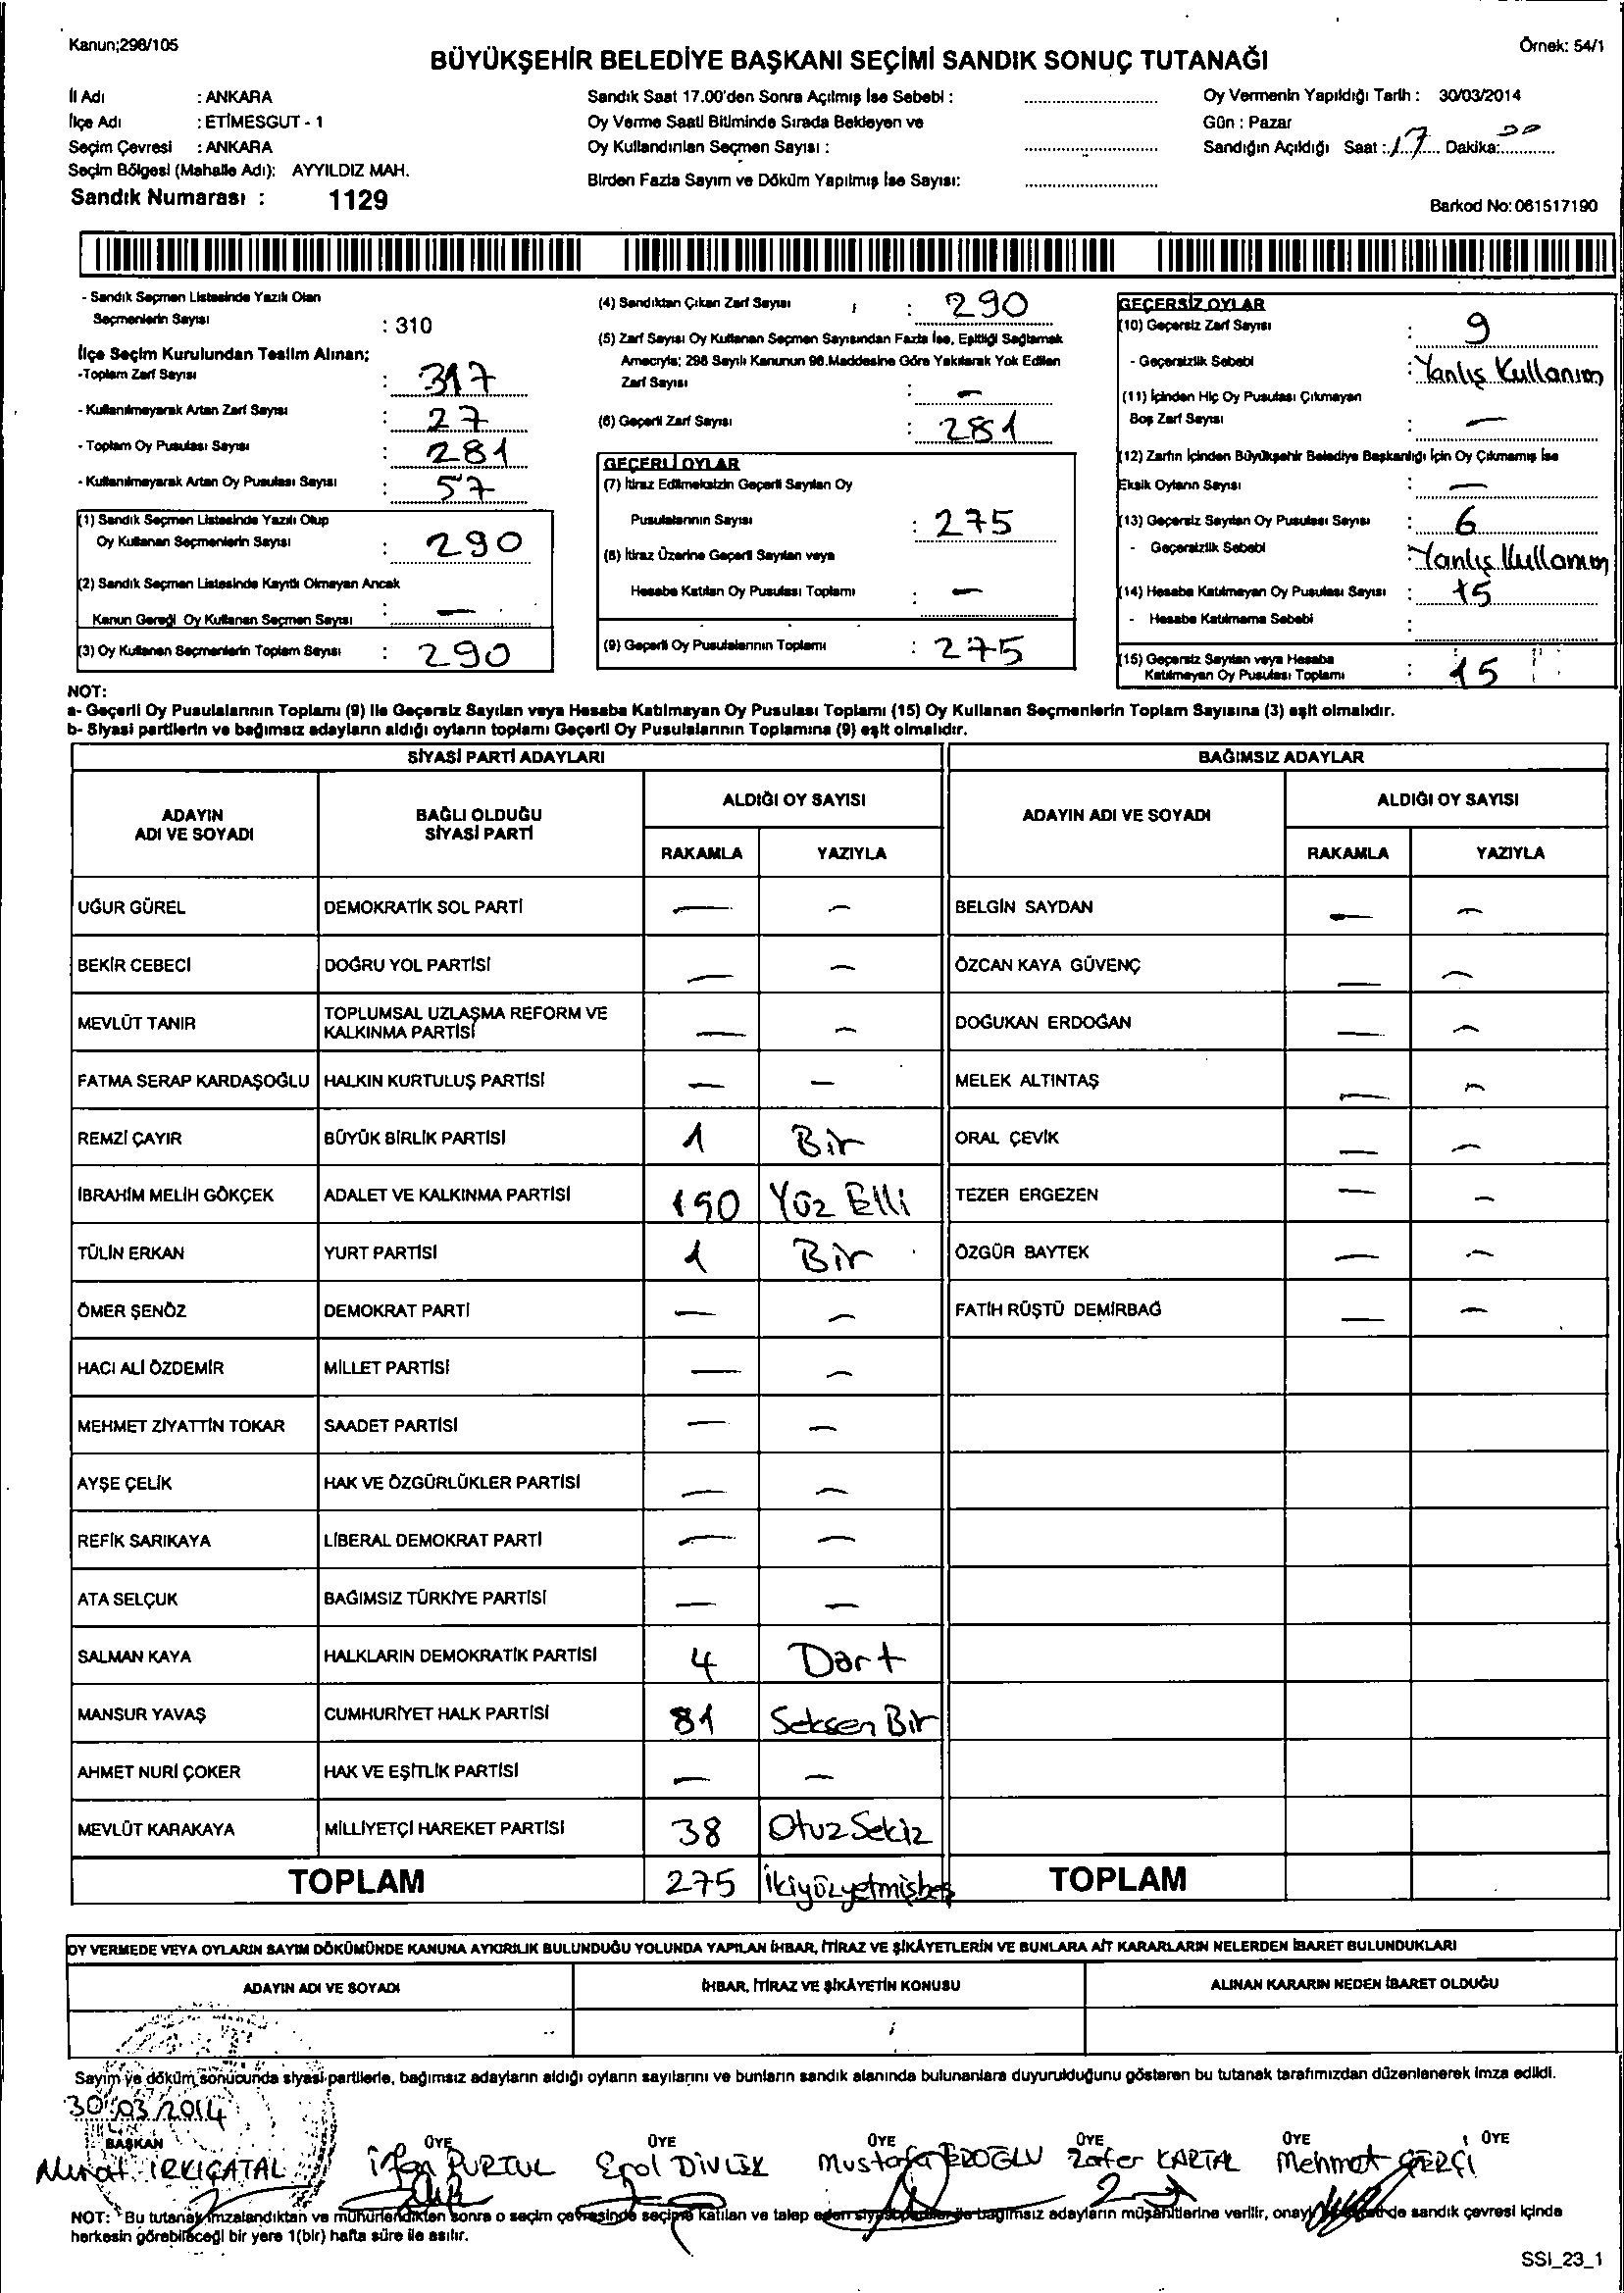 Kanun;298/105
Örnek: 54/1
BÜYÜKŞEHİR BELEDİYE BAŞKANI SEÇİMİ SANDIK SONUÇ TUTANAĞI
İl Adı : ANKARA
İlçe Adı : ETİMESGUT - 1
Seçim Çevresi : ANKARA
Seçim Bölgesi (Mahalle Adı): AYYILDIZ MAH.
Sandık Numarası : 1129
Sandık Saat 17.00'den Sonra Açılmış İse Sebebi :
Oy Verme Saati Bitiminde Sırada Bekleyen ve
Oy Kullandırılan Seçmen Sayısı :
Birden Fazla Sayım ve Döküm Yapılmış İse Sayısı:
Oy Vermenin Yapıldığı Tarih : 30/03/2014
Gün : Pazar
Sandığın Açıldığı Saat : 17 Dakika: 00
Barkod No: 061517190
- Sandık Seçmen Listesinde Yazılı Olan
Seçmenlerin Sayısı : 310
İlçe Seçim Kurulundan Teslim Alınan;
-Toplam Zarf Sayısı : 317
- Kullanılmayarak Artan Zarf Sayısı : 27
- Toplam Oy Pusulası Sayısı : 281
- Kullanılmayarak Artan Oy Pusulası Sayısı : 57
(1) Sandık Seçmen Listesinde Yazılı Olup
Oy Kullanan Seçmenlerin Sayısı : 290
(2) Sandık Seçmen Listesinde Kayıtlı Olmayan Ancak
Kanun Gereği Oy Kullanan Seçmen Sayısı : —
(3) Oy Kullanan Seçmenlerin Toplam Sayısı : 290
(4) Sandıktan Çıkan Zarf Sayısı : 290
(5) Zarf Sayısı Oy Kullanan Seçmen Sayısından Fazla İse, Eşitliği Sağlamak
Amacıyla; 298 Sayılı Kanunun 98.Maddesine Göre Yakılarak Yok Edilen
Zarf Sayısı : —
(6) Geçerli Zarf Sayısı : 281
GEÇERLİ OYLAR
(7) İtiraz Edilmeksizin Geçerli Sayılan Oy
Pusulalarının Sayısı : 275
(8) İtiraz Üzerine Geçerli Sayılan veya
Hesaba Katılan Oy Pusulası Toplamı : —
(9) Geçerli Oy Pusulalarının Toplamı : 275
GEÇERSİZ OYLAR
(10) Geçersiz Zarf Sayısı : 9
- Geçersizlik Sebebi : Yanlış Kullanım
(11) İçinden Hiç Oy Pusulası Çıkmayan
Boş Zarf Sayısı : —
(12) Zarfın İçinden Büyükşehir Belediye Başkanlığı İçin Oy Çıkmamış İse
Eksik Oyların Sayısı : —
(13) Geçersiz Sayılan Oy Pusulası Sayısı : 6
- Geçersizlik Sebebi : Yanlış Kullanım
(14) Hesaba Katılmayan Oy Pusulası Sayısı : 15
- Hesaba Katılmama Sebebi :
(15) Geçersiz Sayılan veya Hesaba
Katılmayan Oy Pusulası Toplamı : 15
NOT:
a- Geçerli Oy Pusulalarının Toplamı (9) ile Geçersiz Sayılan veya Hesaba Katılmayan Oy Pusulası Toplamı (15) Oy Kullanan Seçmenlerin Toplam Sayısına (3) eşit olmalıdır.
b- Siyasi partilerin ve bağımsız adayların aldığı oyların toplamı Geçerli Oy Pusulalarının Toplamına (9) eşit olmalıdır.
SİYASİ PARTİ ADAYLARI BAĞIMSIZ ADAYLAR
ADAYIN ADI VE SOYADI BAĞLI OLDUĞU SİYASİ PARTİ ALDIĞI OY SAYISI ADAYIN ADI VE SOYADI ALDIĞI OY SAYISI
RAKAMLA YAZIYLA RAKAMLA YAZIYLA
UĞUR GÜREL DEMOKRATİK SOL PARTİ — — BELGİN SAYDAN — —
BEKİR CEBECİ DOĞRU YOL PARTİSİ — — ÖZCAN KAYA GÜVENÇ — —
MEVLÜT TANIR TOPLUMSAL UZLAŞMA REFORM VE KALKINMA PARTİSİ — — DOĞUKAN ERDOĞAN — —
FATMA SERAP KARDAŞOĞLU HALKIN KURTULUŞ PARTİSİ — — MELEK ALTINTAŞ — —
REMZİ ÇAYIR BÜYÜK BİRLİK PARTİSİ 1 Bir ORAL ÇEVİK — —
İBRAHİM MELİH GÖKÇEK ADALET VE KALKINMA PARTİSİ 150 Yüz Elli TEZER ERGEZEN — —
TÜLİN ERKAN YURT PARTİSİ 1 Bir ÖZGÜR BAYTEK — —
ÖMER ŞENÖZ DEMOKRAT PARTİ — — FATİH RÜŞTÜ DEMİRBAĞ — —
HACI ALİ ÖZDEMİR MİLLET PARTİSİ — —
MEHMET ZİYATTİN TOKAR SAADET PARTİSİ — —
AYŞE ÇELİK HAK VE ÖZGÜRLÜKLER PARTİSİ — —
REFİK SARIKAYA LİBERAL DEMOKRAT PARTİ — —
ATA SELÇUK BAĞIMSIZ TÜRKİYE PARTİSİ — —
SALMAN KAYA HALKLARIN DEMOKRATİK PARTİSİ 4 Dört
MANSUR YAVAŞ CUMHURİYET HALK PARTİSİ 81 Seksen Bir
AHMET NURİ ÇOKER HAK VE EŞİTLİK PARTİSİ — —
MEVLÜT KARAKAYA MİLLİYETÇİ HAREKET PARTİSİ 38 Otuz Sekiz
TOPLAM 275 İkiyüzyetmişbeş TOPLAM
OY VERMEDE VEYA OYLARIN SAYIM DÖKÜMÜNDE KANUNA AYKIRILIK BULUNDUĞU YOLUNDA YAPILAN İHBAR, İTİRAZ VE ŞİKÂYETLERİN VE BUNLARA AİT KARARLARIN NELERDEN İBARET BULUNDUKLARI
ADAYIN ADI VE SOYADI İHBAR, İTİRAZ VE ŞİKÂYETİN KONUSU ALINAN KARARIN NEDEN İBARET OLDUĞU
Sayım ve döküm sonucunda siyasi partilerle, bağımsız adayların aldığı oyların sayılarını ve bunların sandık alanında bulunanlara duyurulduğunu gösteren bu tutanak tarafımızdan düzenlenerek imza edildi.
30/03/2014
BAŞKAN ÜYE ÜYE ÜYE ÜYE ÜYE ÜYE
Murat İrfan PURTUL Erol Mustafa EROĞLU Zafer KARTAL Mehmet
NOT: Bu tutanak imzalandıktan ve mühürlendikten sonra o seçim çevresinde seçime katılan ve talep eden siyasi bağımsız adayların müşahitlerine verilir, sandık çevresi içinde
herkesin görebileceği bir yere 1(bir) hafta süre ile asılır.
SSI_23_1